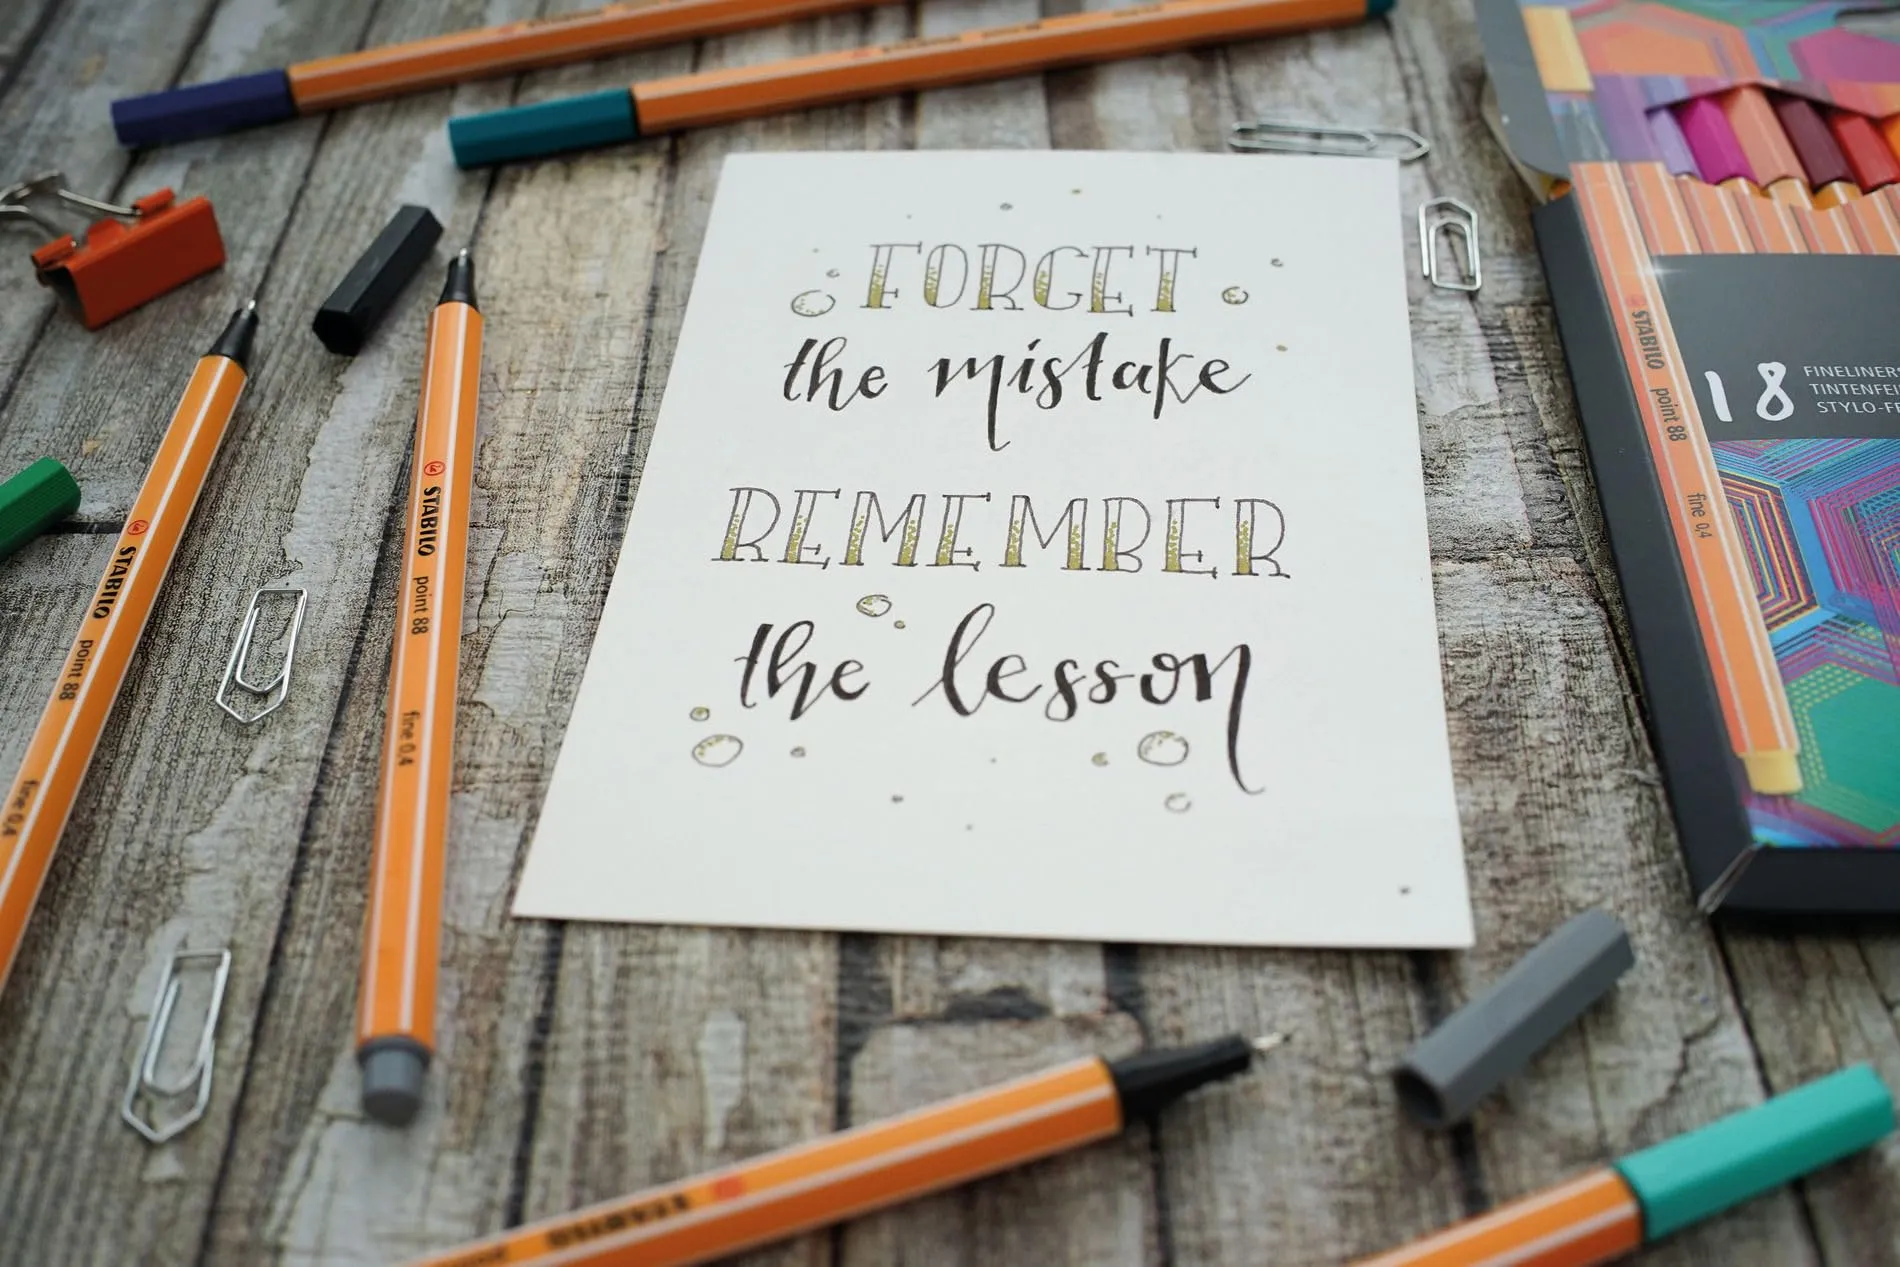 FORGET
the mistake
REMEMBER
the lesson
STABILO point 88 fine 0,4
STABILO point 88 fine 0,4
STABILO point 88 fine 0,4
18
FINELINERS
TINTENFEI
STYLO-FE
STABILO